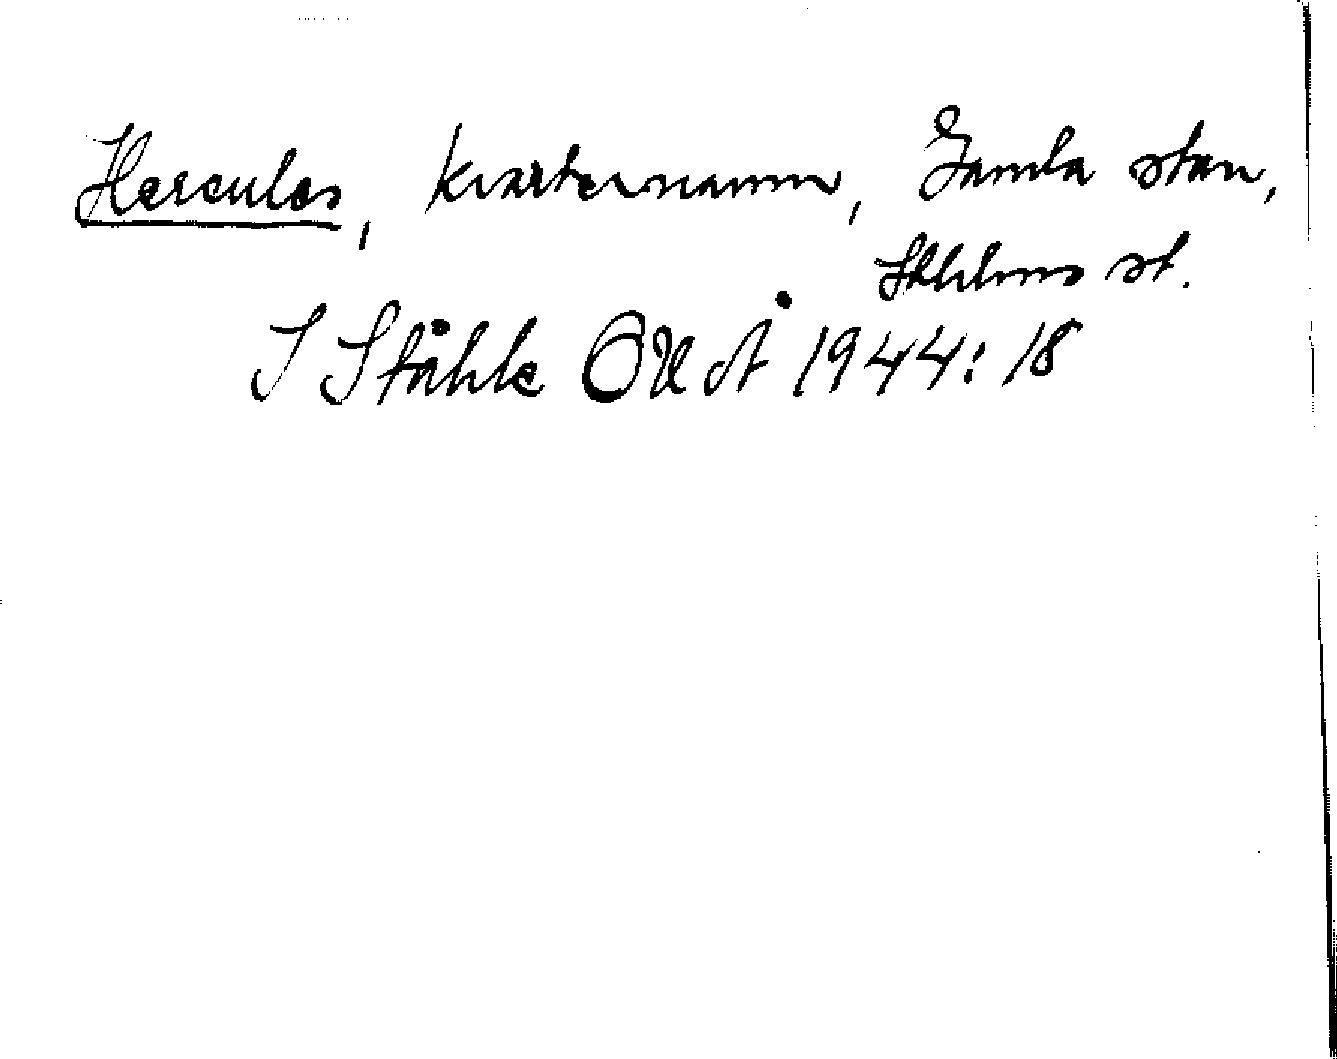 Hercules, kvartersnamn, Gamla stan,
Sthlms st.
I Ståhle OUÅ 1944:18